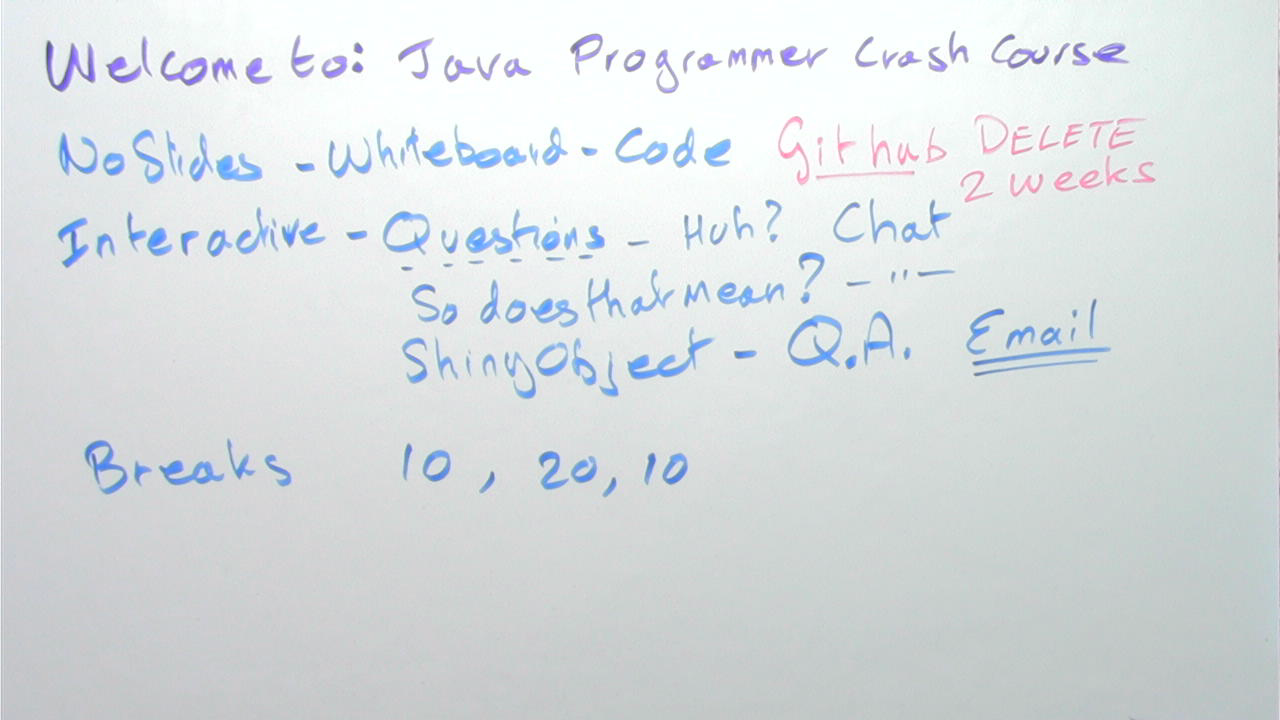 Welcome to: Java Programmer Crash Course
No Slides - Whiteboard - Code Github DELETE
2 weeks
Interactive - Questions - Huh? Chat
So does that mean? - " -
Shiny Object - Q.A. Email
Breaks 10, 20, 10